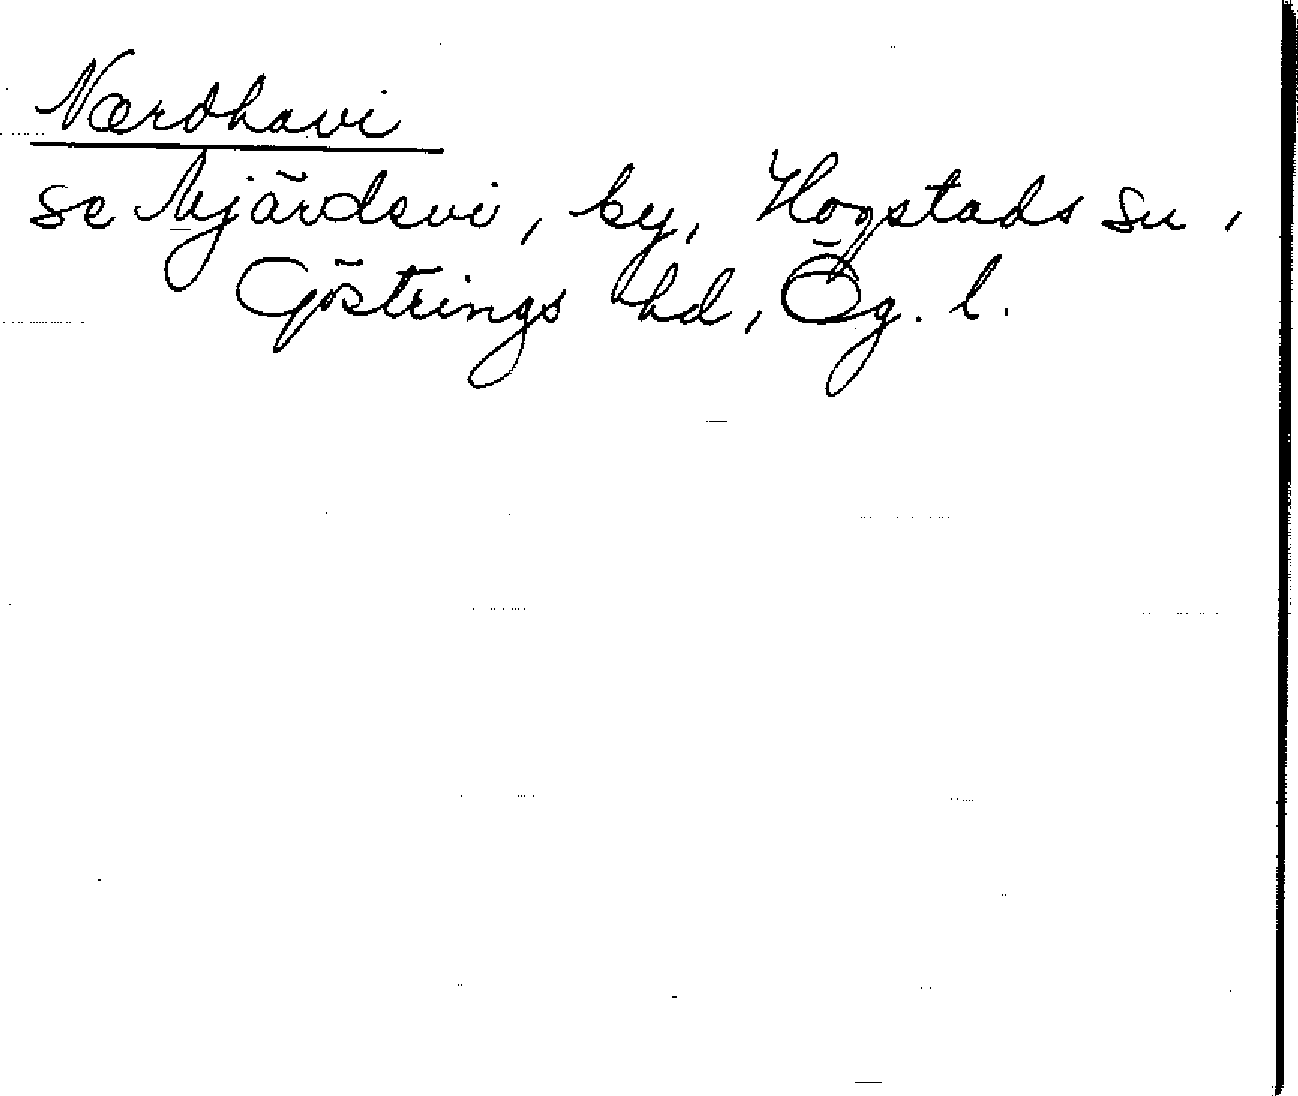 Nærdhavi
se Njärdevi, by, Hogstads sn,
Göstrings hd, Ög. l.